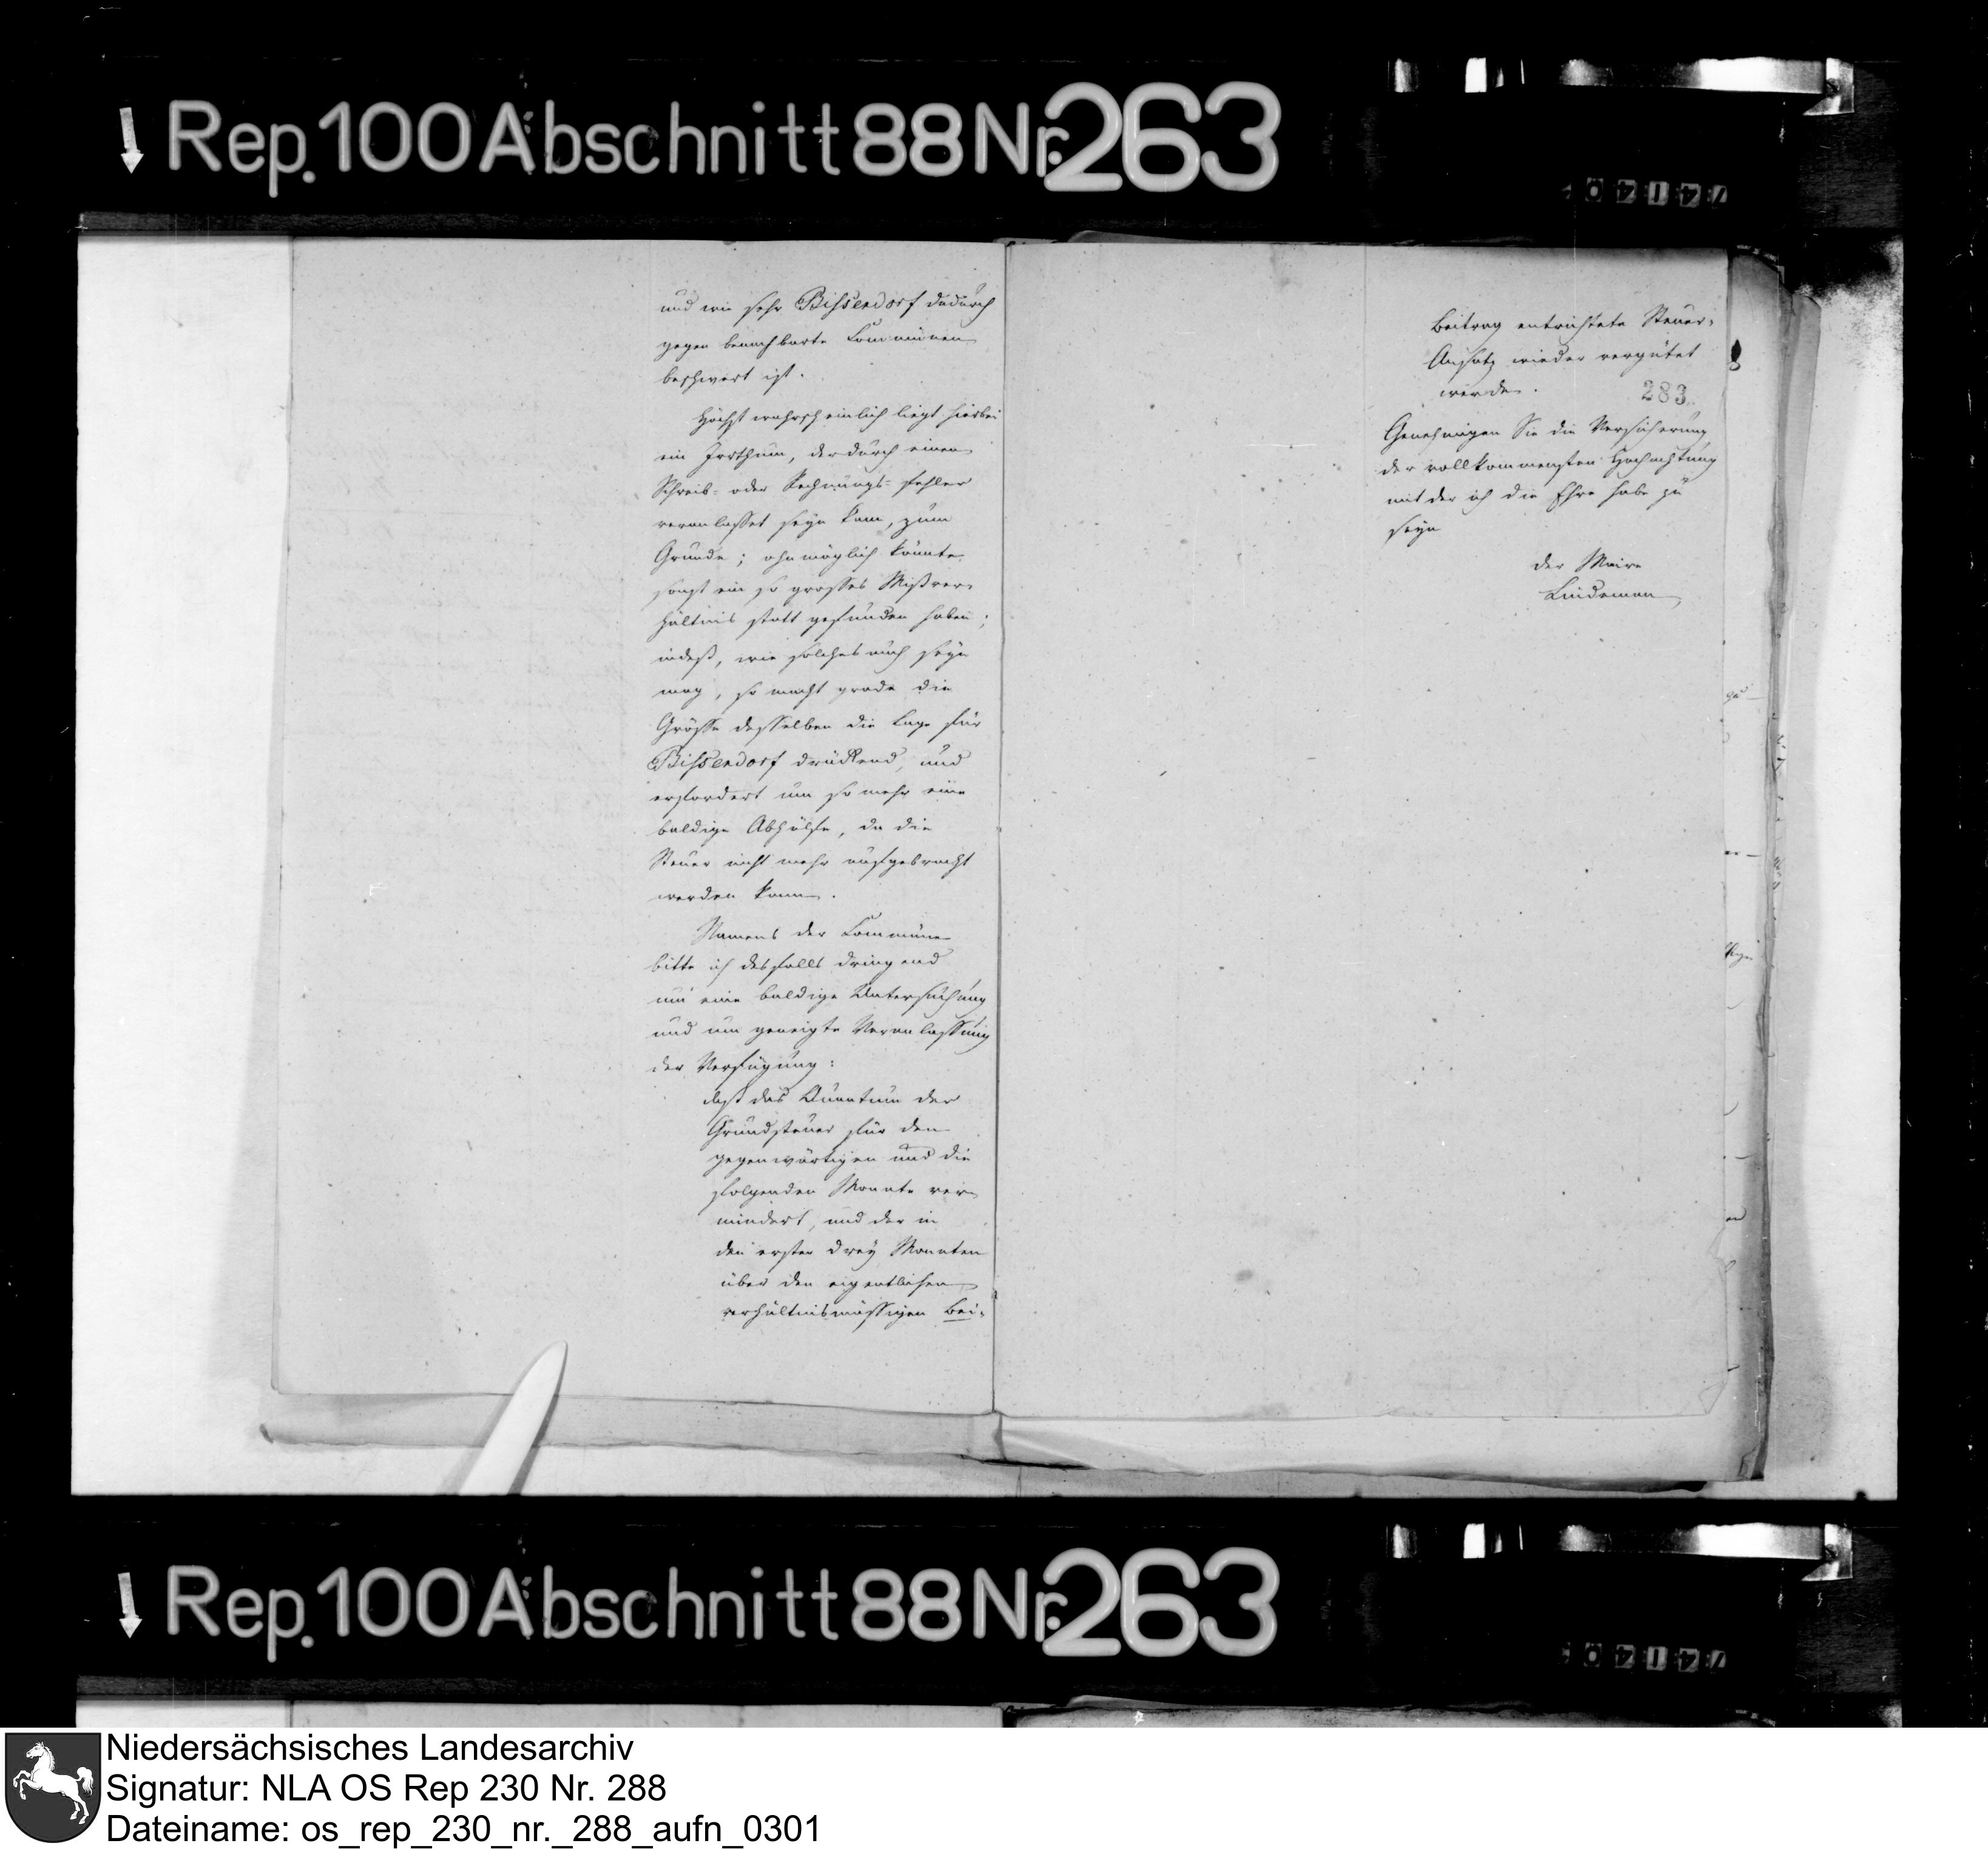 Rep. 100 Abschnitt 88 Nr. 263
und wie sehr Bissendorf dadurch
gegen benachbarte Communen
beschwert ist.
Höchst wahrscheinlich liegt hierbei
ein Irrthum, der durch einen
Schreib- oder Rechnungs-fehler
veranlasset seyn kann, zum
Grunde; ohnmöglich könnte
sonst ein so grosses Mißver
hältnis statt gefunden haben;
indeß, wie solches auch seyn
mag, so macht grade die
Grösse desselben die Lage für
Bissendorf drückend, und
erfordert um so mehr eine
baldige Abhülfe, da die
Steuer nicht mehr aufgebracht
werden kann.
Namens der Commune
bitte ich desfalls dringend
um eine baldige Untersuchung
und um geneigte Veranlassung
der Verfügung:
daß das Quantum der
Grundsteuer für den
gegenwärtigen und die
folgenden Monate ver
mindert, und der in
den ersten drey Monaten
über den eigentlichen
verhältnismässigen Bei-
Beitrag entrichtete Steuer-
Ansatz wieder vergütet
werde.
283.
Genehmigen Sie die Versicherung
der vollkommensten Hochachtung
mit der ich die Ehre habe zu
seyn
der Maire
Lindeman
Rep. 100 Abschnitt 88 Nr. 263
Niedersächsisches Landesarchiv
Signatur: NLA OS Rep 230 Nr. 288
Dateiname: os_rep_230_nr._288_aufn_0301